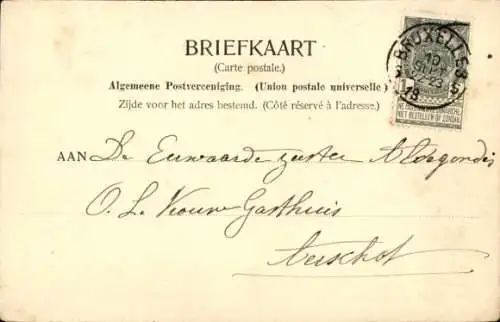 BRIEFKAART
(Carte postale.)
Algemeene Postvereeniging. (Union postale universelle)
Zijde voor het adres bestemd. (Côté réservé à l'adresse.)
BRUXELLES
10
SEPT
NIET BESTELLEN OP ZONDAG
AAN De Eerwaarde zuster Aldegondis
O. L. Vrouw Gasthuis
Aerschot